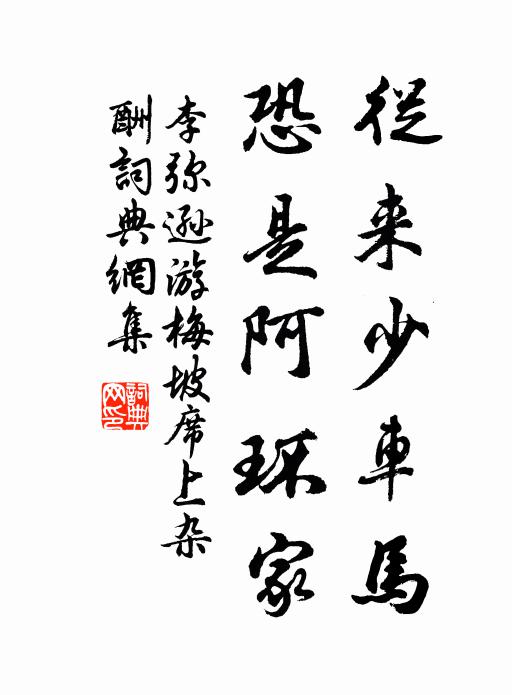 從来少車馬
恐是阿环家
李弥遜游梅坡席上杂
酬詞典網集
詞典网印